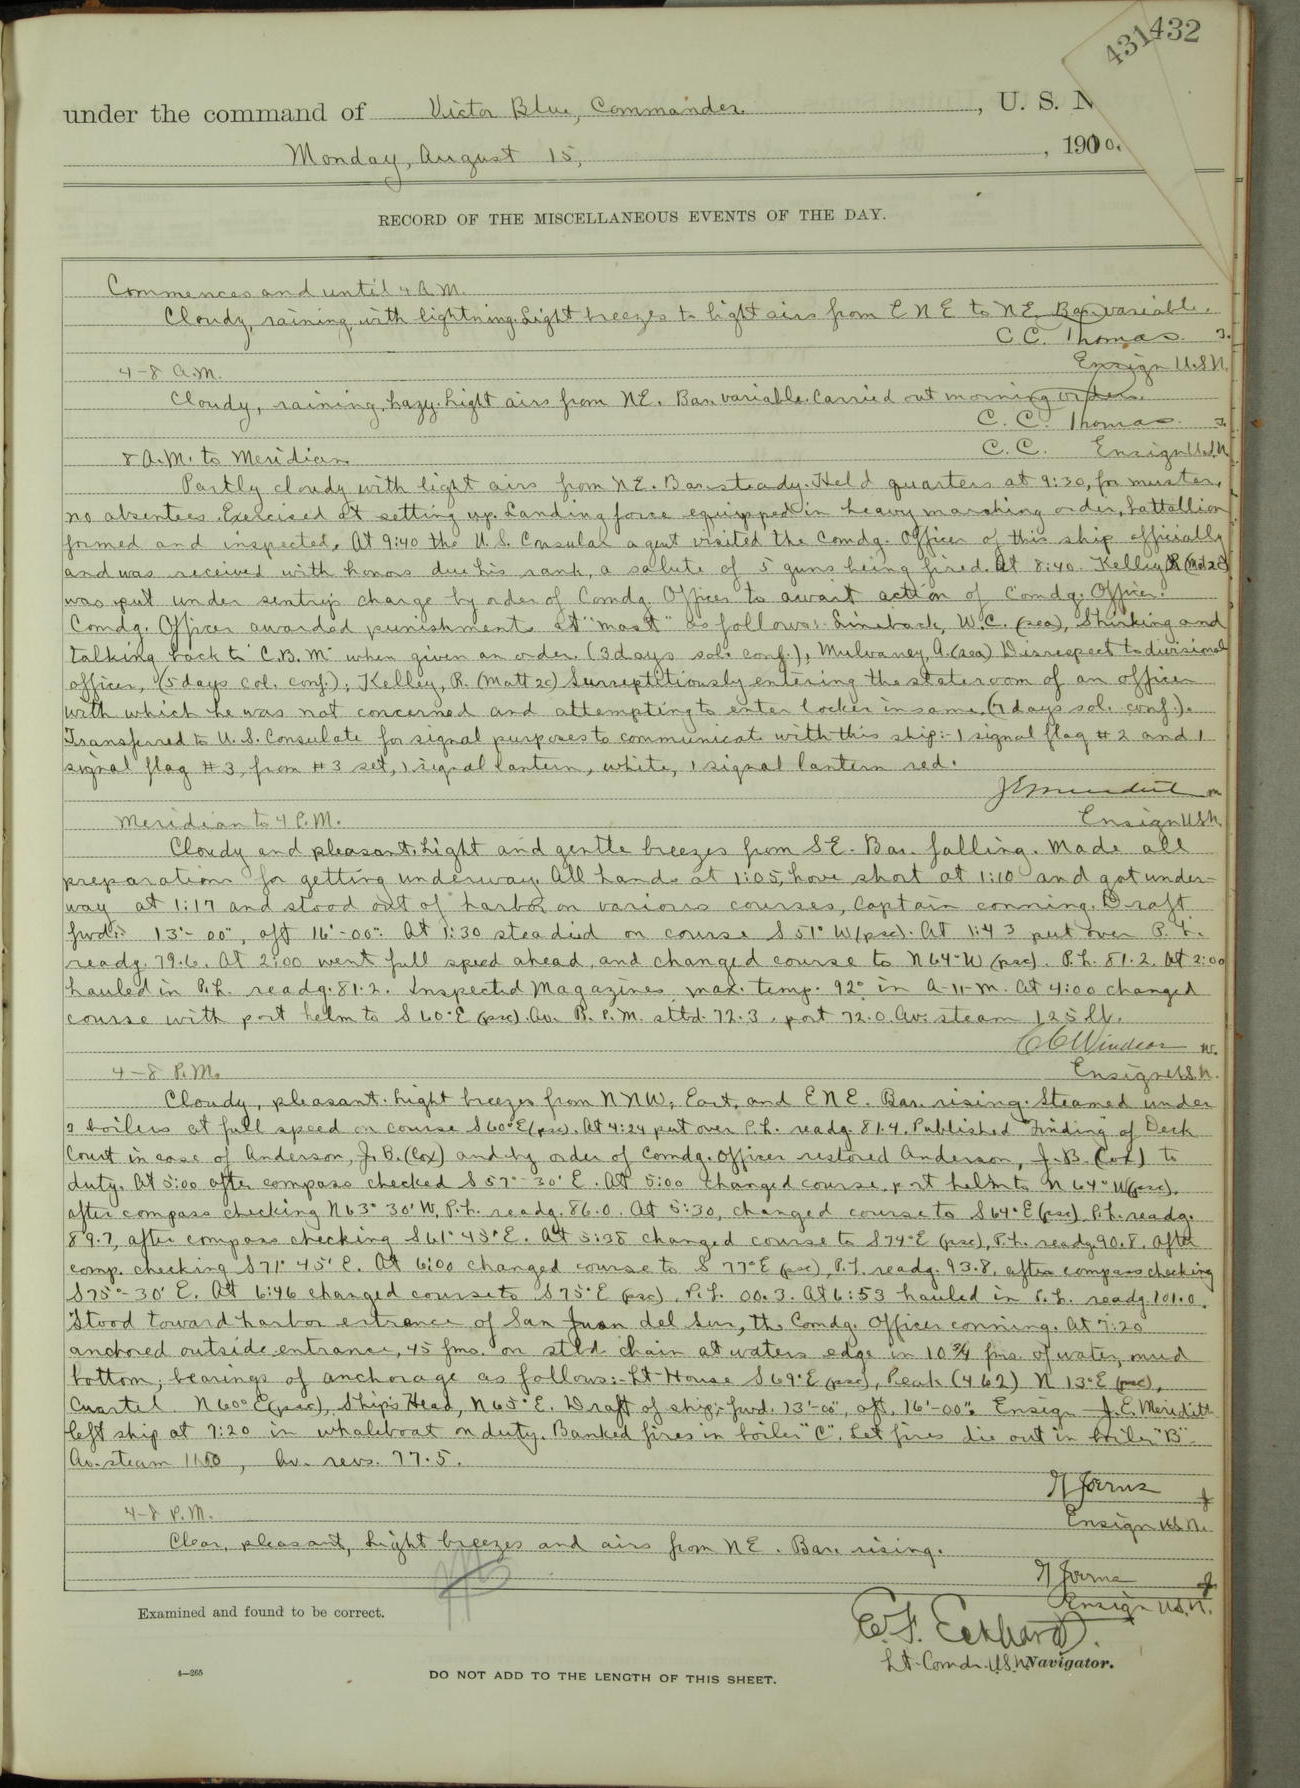 431432
under the command of Victor Blue, Commander, U. S. N
Monday, August 15, 1910.
RECORD OF THE MISCELLANEOUS EVENTS OF THE DAY.
Commences and until 4 A.M.
Cloudy, raining with lightning. Light breezes to light airs from ENE to NE. Bar. variable.
C. C. Thomas
Ensign U.S.N.
4-8 A.M.
Cloudy, raining, hazy. Light airs from NE. Bar. variable. Carried out morning orders.
C. C. Thomas
8 A.M. to Meridian
C. C. Ensign U.S.N.
Partly cloudy with light airs from NE. Bar. steady. Held quarters at 9:30, for muster,
no absentees. Exercised at setting up. Landing force equipped in heavy marching order, battallion
formed and inspected. At 9:40 the U. S. Consular agent visited the Comdg. Officer of this ship officially
and was received with honors due his rank, a salute of 5 guns being fired. At 8:40. Kelley R (Mat 2c)
was put under sentry's charge by order of Comdg. Officer to await action of Comdg. Officer.
Comdg. Officer awarded punishments at "mast" as follows: Lineback, W.C. (sea), Shirking and
talking back to C.B.M. when given an order. (3 days sol. conf.), Mulvaney, A. (sea) Disrespect to divisional
officer, (5 days sol. conf.); Kelley, R. (Matt 2c) Surreptitiously entering the stateroom of an officer
with which he was not concerned and attempting to enter locker in same. (7 days sol. conf.).
Transferred to U. S. Consulate for signal purposes to communicate with this ship:- 1 signal flag #2 and 1
signal flag #3, from #3 set, 1 signal lantern, white, 1 signal lantern red.
J E Meredith
Meridian to 4 P.M.
Ensign U.S.N.
Cloudy and pleasant. Light and gentle breezes from SE. Bar. falling. Made all
preparations for getting underway. All hands at 1:05, hove short at 1:10 and got under-
way at 1:17 and stood out of harbor on various courses, Captain conning. Draft
fwd:- 13'-00", aft 16'-00". At 1:30 steadied on course S 51° W (psc). At 1:43 put over P. L.
readg. 79.6. At 2:00 went full speed ahead, and changed course to N 64° W (psc). P.L. 81.2. At 2:00
hauled in P.L. readg. 81.2. Inspected Magazines, max. temp. 92° in A-11-M. At 4:00 changed
course with port helm to S 60° E (psc). Av. R.P.M. stbd. 72.3, port 72.0. Av. steam 125 lb.
C C Windsor
4-8 P.M.
Ensign U.S.N.
Cloudy, pleasant. Light breezes from NNW, East, and ENE. Bar. rising. Steamed under
boilers at full speed on course S 60° E (psc). At 4:24 put over P.L. readg. 81.4. Published Finding of Deck
Court in case of Anderson, J. B. (Cox) and by order of Comdg. Officer restored Anderson, J. B. (Cox) to
duty. At 5:00 after compass checked S 57°-30' E. At 5:00 changed course, port helm to N 64° W (psc),
after compass checking N 63° 30' W, P.L. readg. 86.0. At 5:30, changed course to S 64° E (psc) P.L. readg.
89.7, after compass checking S 61° 45' E. At 5:38 changed course to S 74° E (psc), P.L. readg 90.8. After
comp. checking S 71° 45' E. At 6:00 changed course to S 77° E (psc), P.L. readg. 93.8, after compass checking
S 75°-30' E. At 6:46 changed course to S 75° E (psc). P.L. 00.3. At 6:53 hauled in P.L. readg. 101.0.
Stood toward harbor entrance of San Juan del Sur, the Comdg. Officer conning. At 7:20
anchored outside entrance, 45 fms. on stbd chain at waters edge in 10 3/4 fms. of water, mud
bottom; bearings of anchorage as follows:- Lt-House S 69° E (psc), Peak (462) N 13° E (psc),
Cuartel N 60° E (psc), Ship's Head, N 65° E. Draft of ship:- fwd. 13'-00", aft. 16'-00". Ensign J. E. Meredith
left ship at 7:20 in whaleboat on duty. Banked fires in boiler "C". Let fires die out in boiler "B".
Av. steam, Av. revs. 77.5.
Ensign U.S.N.
4-8 P.M.
Clear, pleasant, Light breezes and airs from NE. Bar. rising.
Ensign U.S.N.
Examined and found to be correct.
E. F. Eckhardt.
Lt-Comdr. U.S.N. Navigator.
4—265
DO NOT ADD TO THE LENGTH OF THIS SHEET.